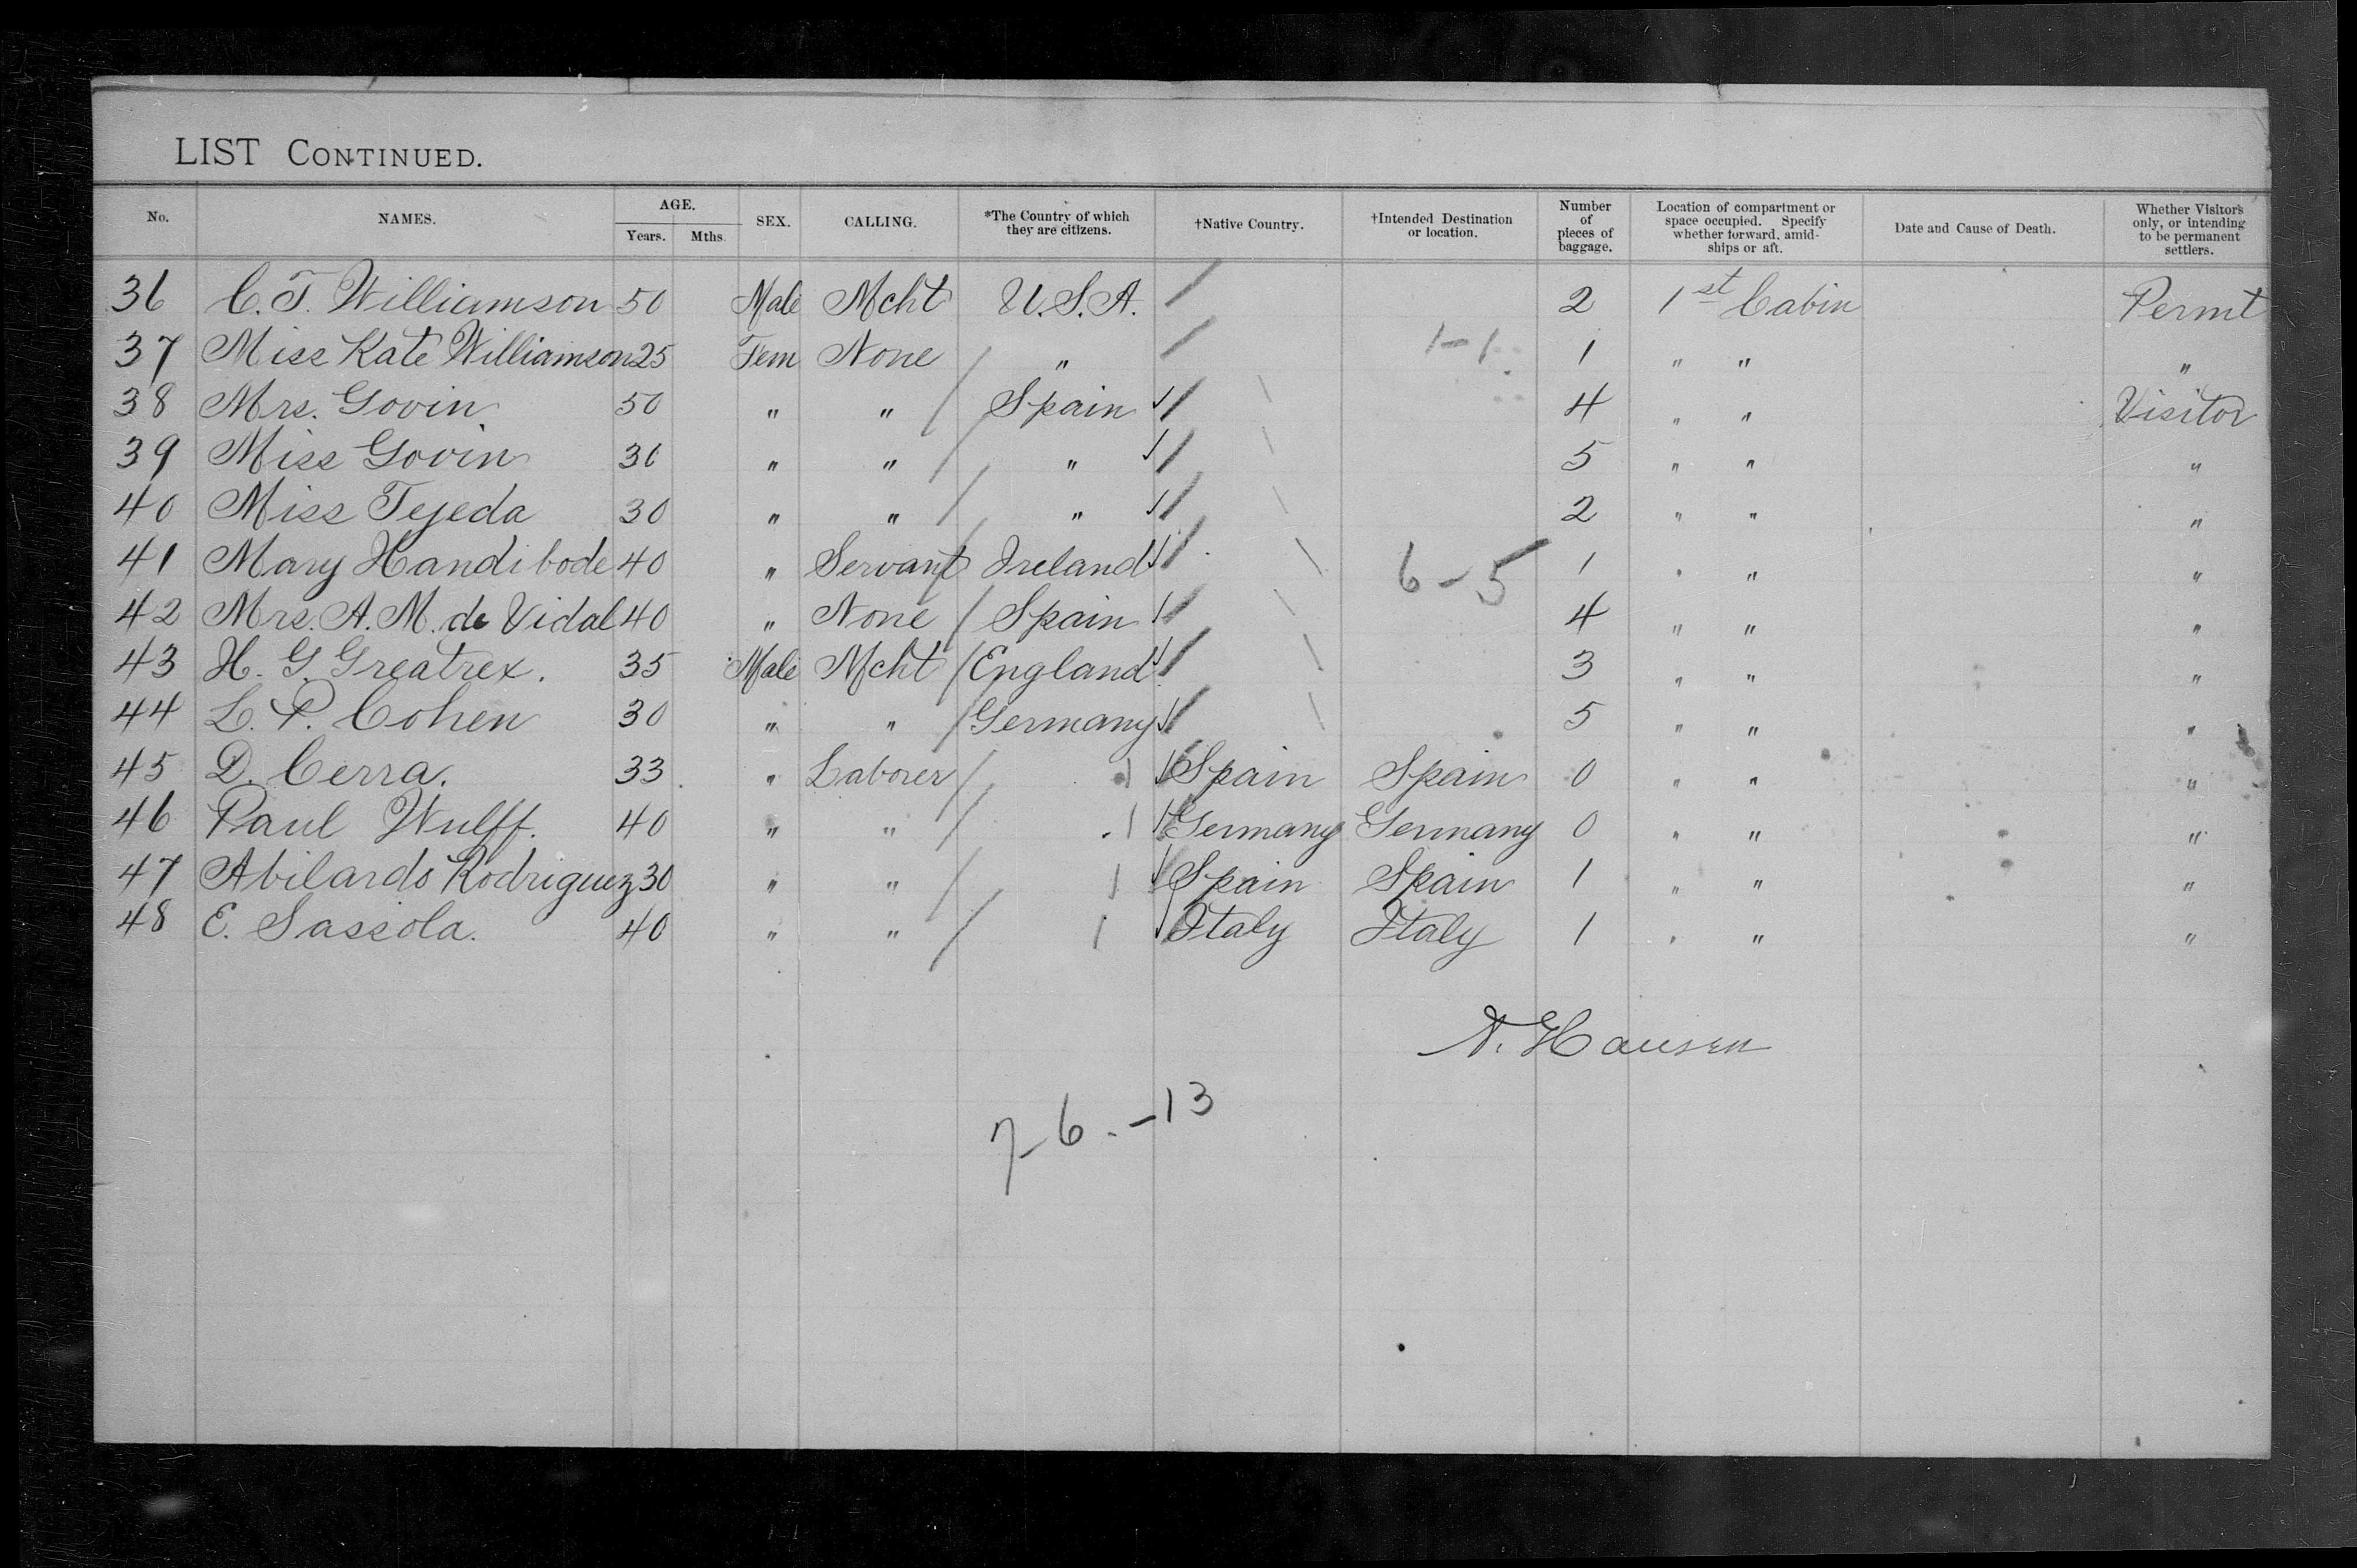 LIST CONTINUED.
No. NAMES. AGE. Years. Mths. SEX. CALLING. *The Country of which they are citizens. †Native Country. †Intended Destination or location. Number of pieces of baggage. Location of compartment or space occupied. Specify whether forward, amidships or aft. Date and Cause of Death. Whether Visitors only, or intending to be permanent settlers.
36 C. T. Williamson 50 Male Mcht U.S.A. / 2 1st Cabin Permt
37 Miss Kate Williamson 25 Fem None / " / 1-1 1 " " "
38 Mrs. Govin 50 " " / Spain 4 " " Visitor
39 Miss Govin 30 " " / " 5 " " "
40 Miss Tejeda 30 " " / " 2 " " "
41 Mary Handibode 40 " Servant Ireland 6-5 1 " " "
42 Mrs. A. M. de Vidal 40 " None / Spain 4 " " "
43 H. G. Greatrex. 35 Male Mcht / England 3 " " "
44 L. P. Cohen 30 " " / Germany 5 " " "
45 D. Cerra. 33 " Laborer / 1 Spain Spain 0 " " "
46 Paul Wulff. 40 " " / 1 Germany Germany 0 " " "
47 Abilardo Rodriguez 30 " " / 1 Spain Spain 1 " " "
48 E. Sassola. 40 " " / 1 Italy Italy 1 " " "
N. Hansen
7-6.-13